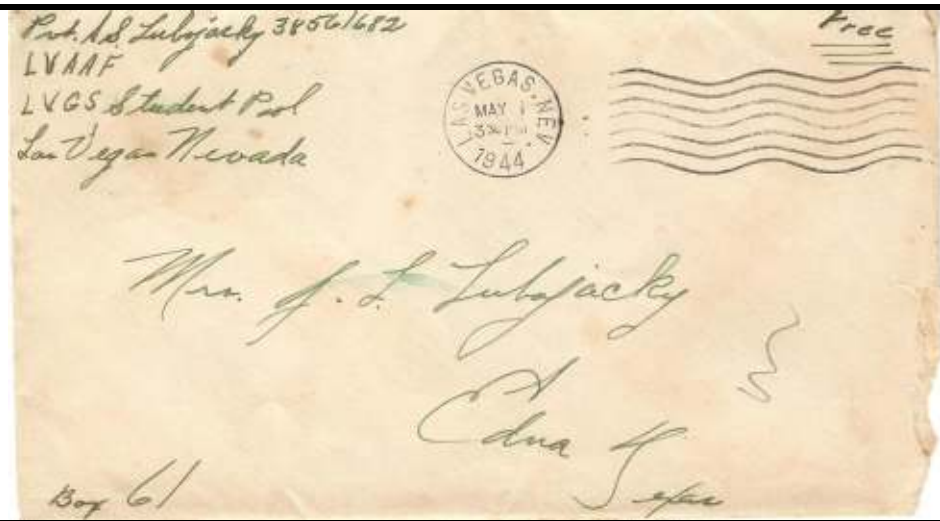 Pvt. A S. Lubojacky 38561682
LVAAF
LVGS Student Pool
Las Vegas Nevada
Free
LAS VEGAS, NEV.
MAY 1
3 30 PM
1944
Mrs. J. L. Lubojacky
Edna
Texas
Box 61